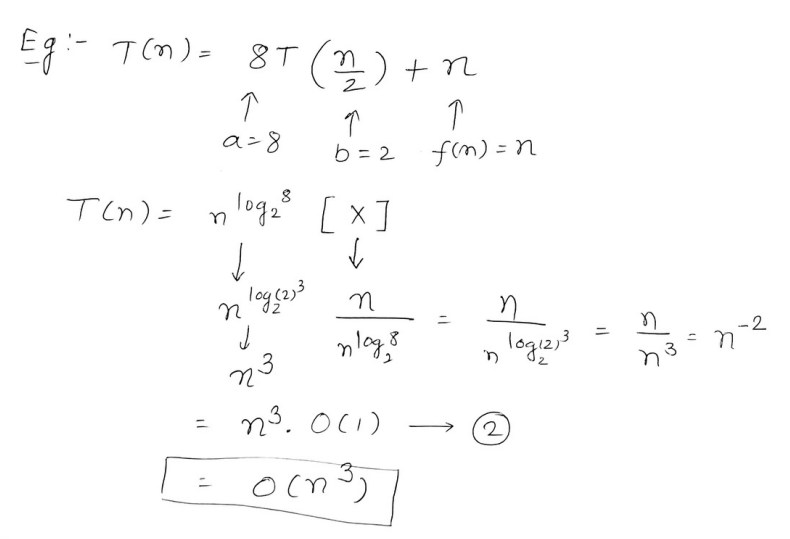 Eg :- T(n) = 8T(n/2) + n
↑ ↑ ↑
a=8 b=2 f(n)=n
T(n) = n^log₂8 [X]
↓ ↓
n^log₂(2)³ n/n^log₂8 = n/n^log₂(2)³ = n/n³ = n^-2
↓
n³
= n³. O(1) → ②
= O(n³)